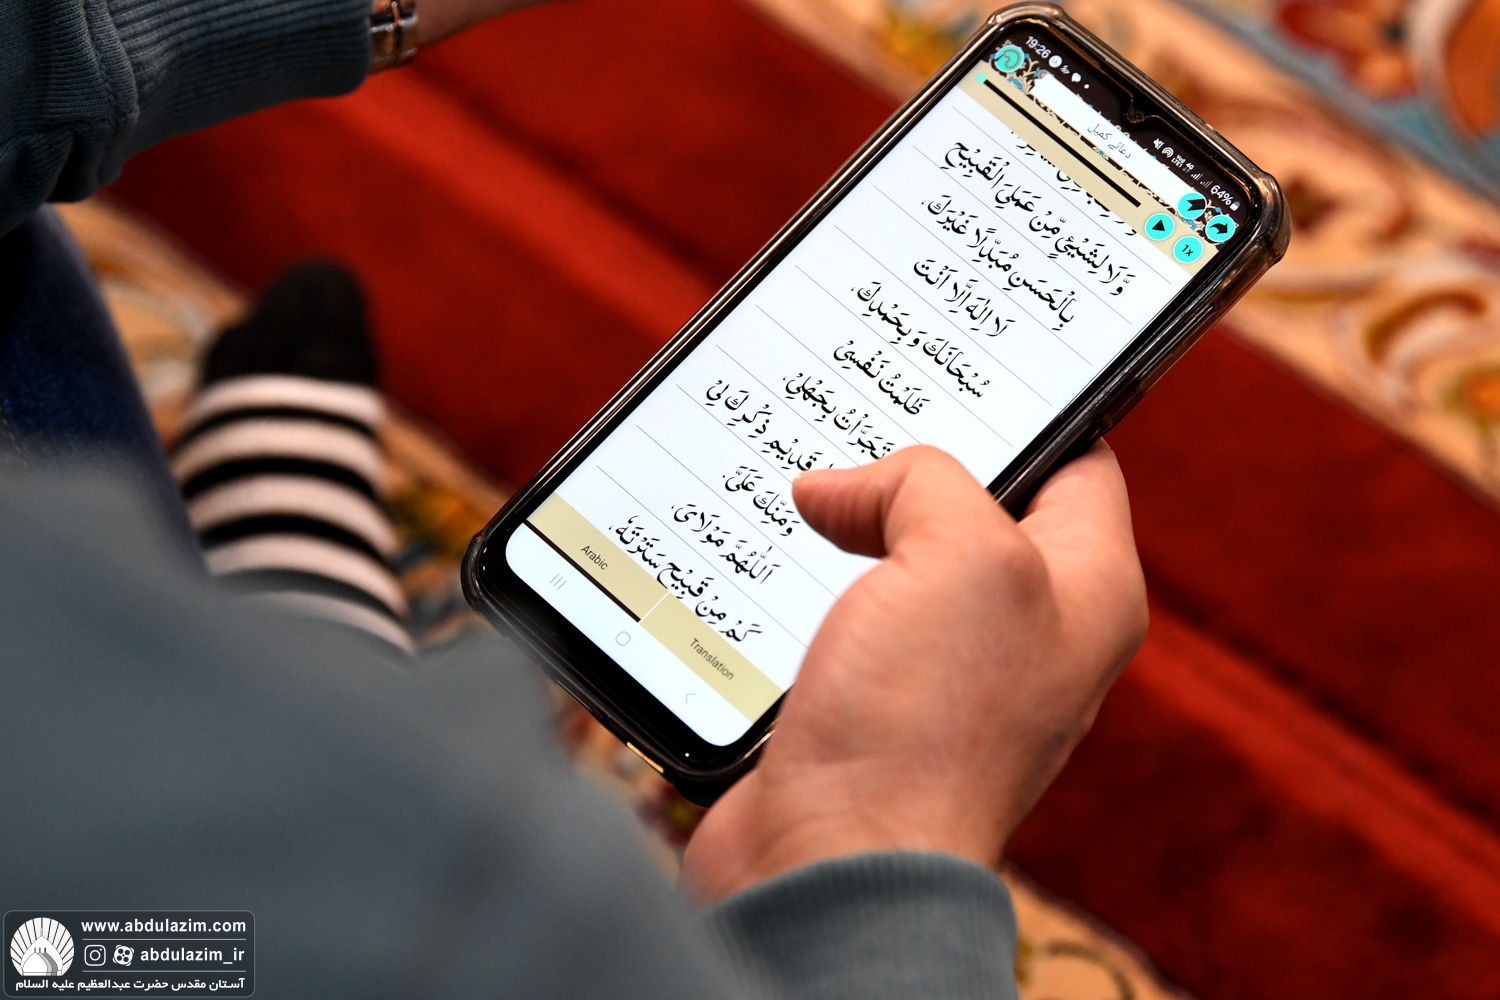 19:26
64%
دعائے کمیل
1x
وَّلَا لِشَيْئٍ مِّنْ عَمَلِىَ الْقَبِيْحِ
بِالْحَسَنِ مُبَدِّلًا غَيْرَكَ،
لَا اِلٰهَ اِلَّا اَنْتَ
سُبْحَانَكَ وَ بِحَمْدِكَ،
ظَلَمْتُ نَفْسِىْ
تَجَرَّاْتُ بِجَهْلِىْ،
قَدِيْمِ ذِكْرِكَ لِىْ
وَمَنِّكَ عَلَىَّ.
اَللّٰهُمَّ مَوْلَاىَ،
كَمْ مِنْ قَبِيْحٍ سَتَرْتَهٗ،
Arabic
Translation
www.abdulazim.com
abdulazim_ir
آستان مقدس حضرت عبدالعظیم علیه السلام